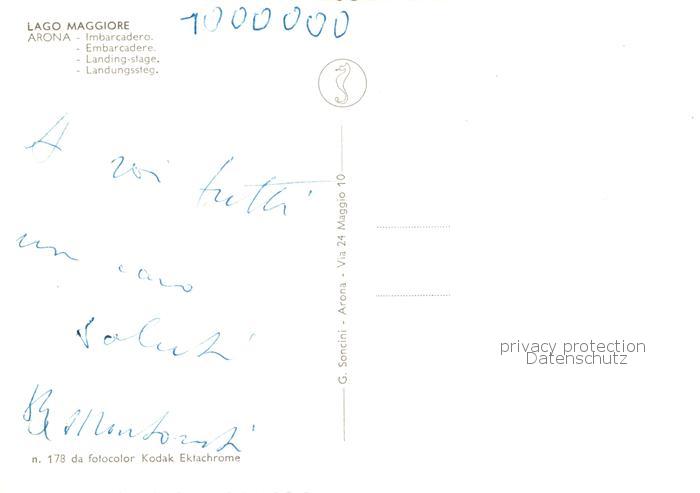 1000000
LAGO MAGGIORE
ARONA - Imbarcadero.
- Embarcadere.
- Landing-stage.
- Landungssteg.
A voi tutti
un caro
saluti
G. Soncini - Arona - Via 24 Maggio 10
privacy protection
Datenschutz
n. 178 da fotocolor Kodak Ektachrome